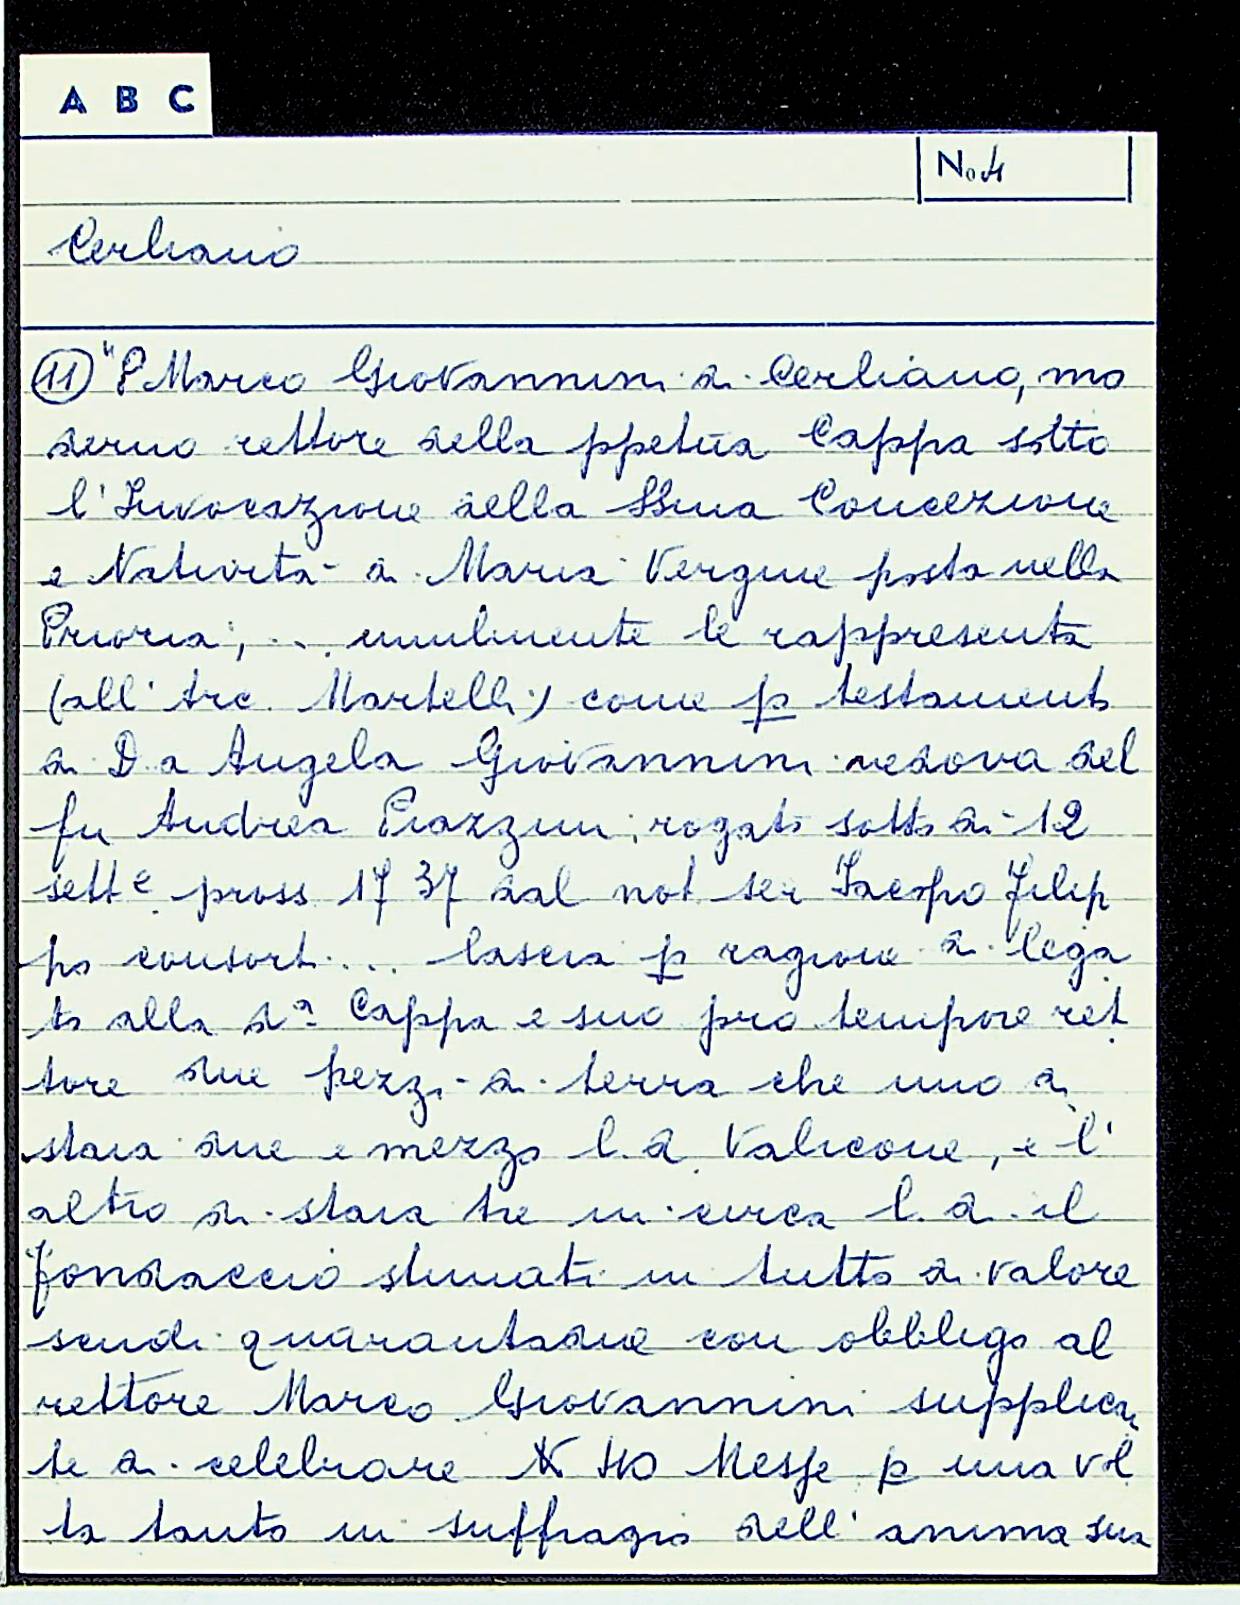 A B C
No 4
Cerliano
(11) "P Marco Giovannini di Cerliano, mo
derno rettore della ppetua Cappa sotto
l'Invocazione della SSma Concezione
e Natività di Maria Vergine posta nella
Prioria; ... umilmente le rappresenta
(all'Arc. Martelli) come p testamento
di Da Angela Giovannini vedova del
fu Andrea Piazzini, rogato sotto di 12
sett e pross 1737 dal not ser Jacopo Filip
po consort... lascia p ragione di lega
to alla da Cappa e suo pro tempore ret
tore due pezzi di terra che uno di
staia due e mezzo l. d. Valicone, e l'
altro di staia tre in circa l. d. il
Fondaccio stimati in tutto di valore
scudi quarantadue con obbligo al
rettore Marco Giovannini supplican
te di celebrare N 40 Messe p una vol
ta tanto in suffragio dell'anima sua